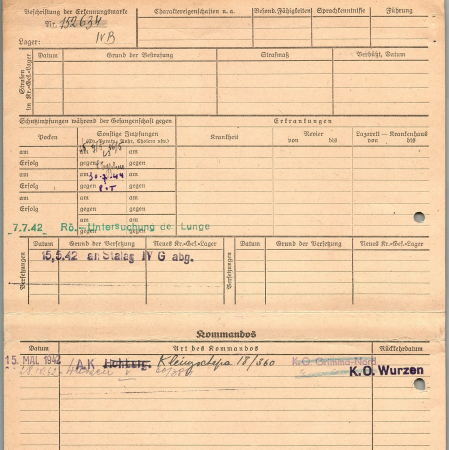 Beschriftung der Erkennungsmarke
Nr. 152634
IV B
Lager:
Charaktereigenschaften u. a.
Besond. Fähigkeiten
Sprachkenntnisse
Führung
Strafen im Kr.-Gef.-Lager
Datum
Grund der Bestrafung
Strafmaß
Verbüßt, Datum
Schutzimpfungen während der Gefangenschaft gegen
Erkrankungen
Pocken
Sonstige Impfungen
(Ty.-Paraty., Ruhr, Cholera usw.)
Krankheit
Revier
von bis
Lazarett – Krankenhaus
von bis
am am am
Erfolg gegen gegen
am am 30.7.44 am
Erfolg gegen gegen
am am am
Erfolg gegen gegen
am am
gegen gegen
7.7.42 Rö.-Untersuchung de Lunge
Versetzungen
Datum
Grund der Versetzung
Neues Kr.-Gef.-Lager
Versetzungen
Datum
Grund der Versetzung
Neues Kr.-Gef.-Lager
15.5.42 an Stalag IV G abg.
Kommandos
Datum
Art des Kommandos
Rückkehrdatum
15. MAI 1942 A.K. 18/360 K.O. Grimma-Nord
K.O. Wurzen